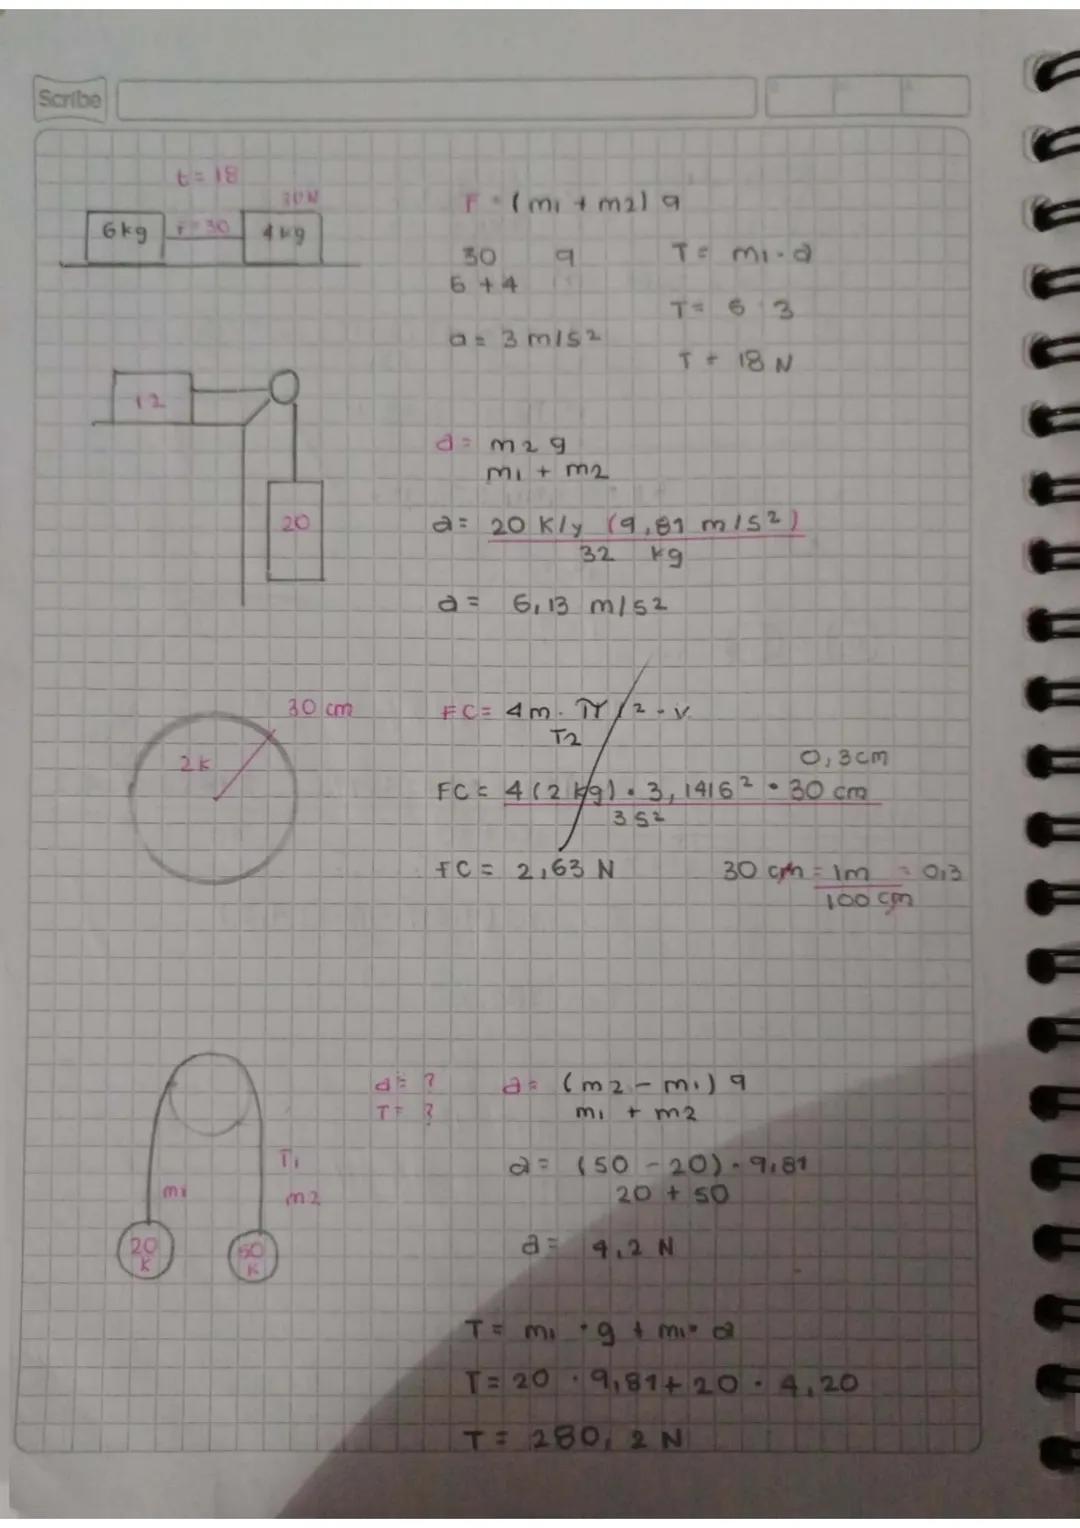 Scribe
t = 18
30N
6kg F=30 4kg
F = (m1 + m2) a
30 a
6 + 4
a = 3 m/s2
T = m1 · a
T = 6 · 3
T = 18 N
12
20
a = m2 g
m1 + m2
a = 20 K/y (9,81 m/s2)
32 kg
a = 6,13 m/s2
30 cm
2k
FC = 4m · π r2 · v
T2
0,3cm
FC = 4 (2 kg) · 3,1416 2 · 30 cm
3 s2
FC = 2,63 N
30 cm = 1m = 0,3
100 cm
a = ?
T = ?
a = (m2 - m1) g
m1 + m2
a = (50 - 20) · 9,81
20 + 50
a = 4,2 N
T1
m1
m2
20 K
50 K
T = m1 · g + m1 · a
T = 20 · 9,81 + 20 · 4,20
T = 280,2 N